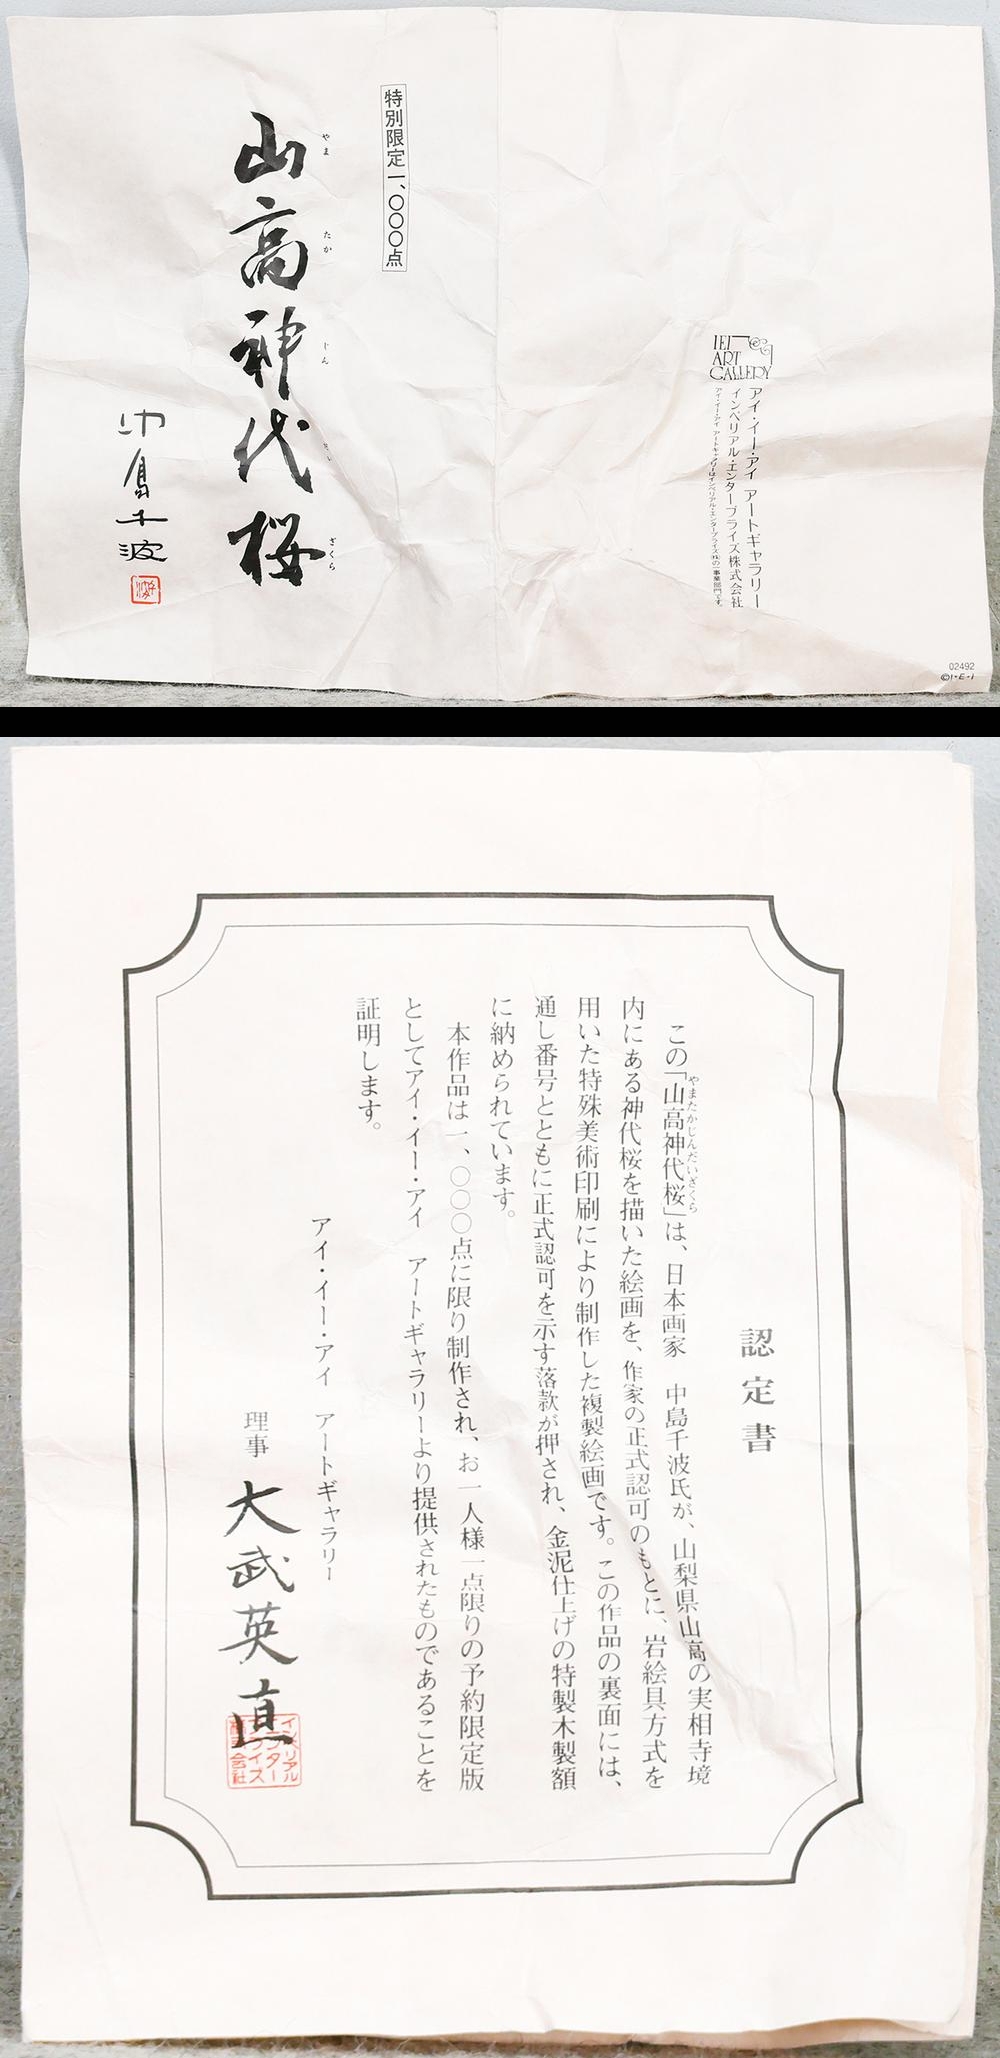 特別限定一、〇〇〇点
山高神代桜
やま たか じん だい ざくら
中島千波
IEI
ART
GALLERY
アイ・イー・アイ アートギャラリー
インペリアル・エンタープライズ株式会社
アイ・イー・アイ アートギャラリーはインペリアル・エンタープライズ㈱の一事業部門です。
02492
©I・E・I
認定書
この「山高神代桜」は、日本画家 中島千波氏が、山梨県山高の実相寺境
やまたかじんだいざくら
内にある神代桜を描いた絵画を、作家の正式認可のもとに、岩絵具方式を
用いた特殊美術印刷により制作した複製絵画です。この作品の裏面には、
通し番号とともに正式認可を示す落款が押され、金泥仕上げの特製木製額
に納められています。
本作品は一、〇〇〇点に限り制作され、お一人様一点限りの予約限定版
としてアイ・イー・アイ アートギャラリーより提供されたものであることを
証明します。
アイ・イー・アイ アートギャラリー
理事 大武英直